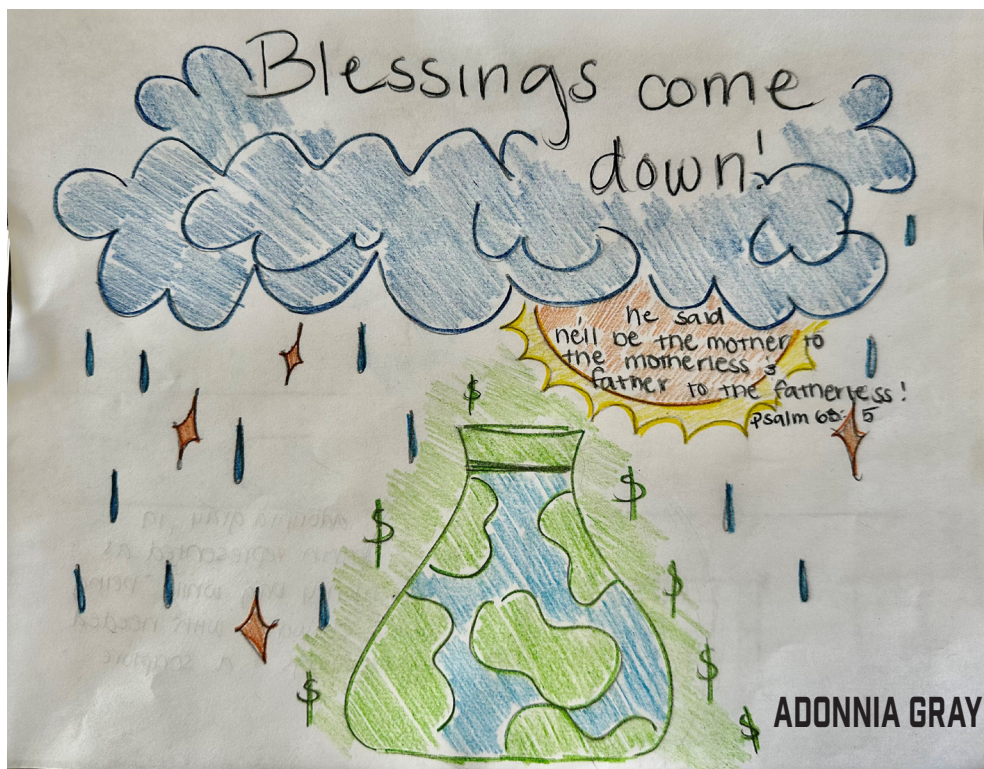 Blessings come
down!
he said
he'll be the mother to
the motherless &
father to the fatherless!
Psalm 68:5
$
$
$
$
$
$
$
ADONNIA GRAY